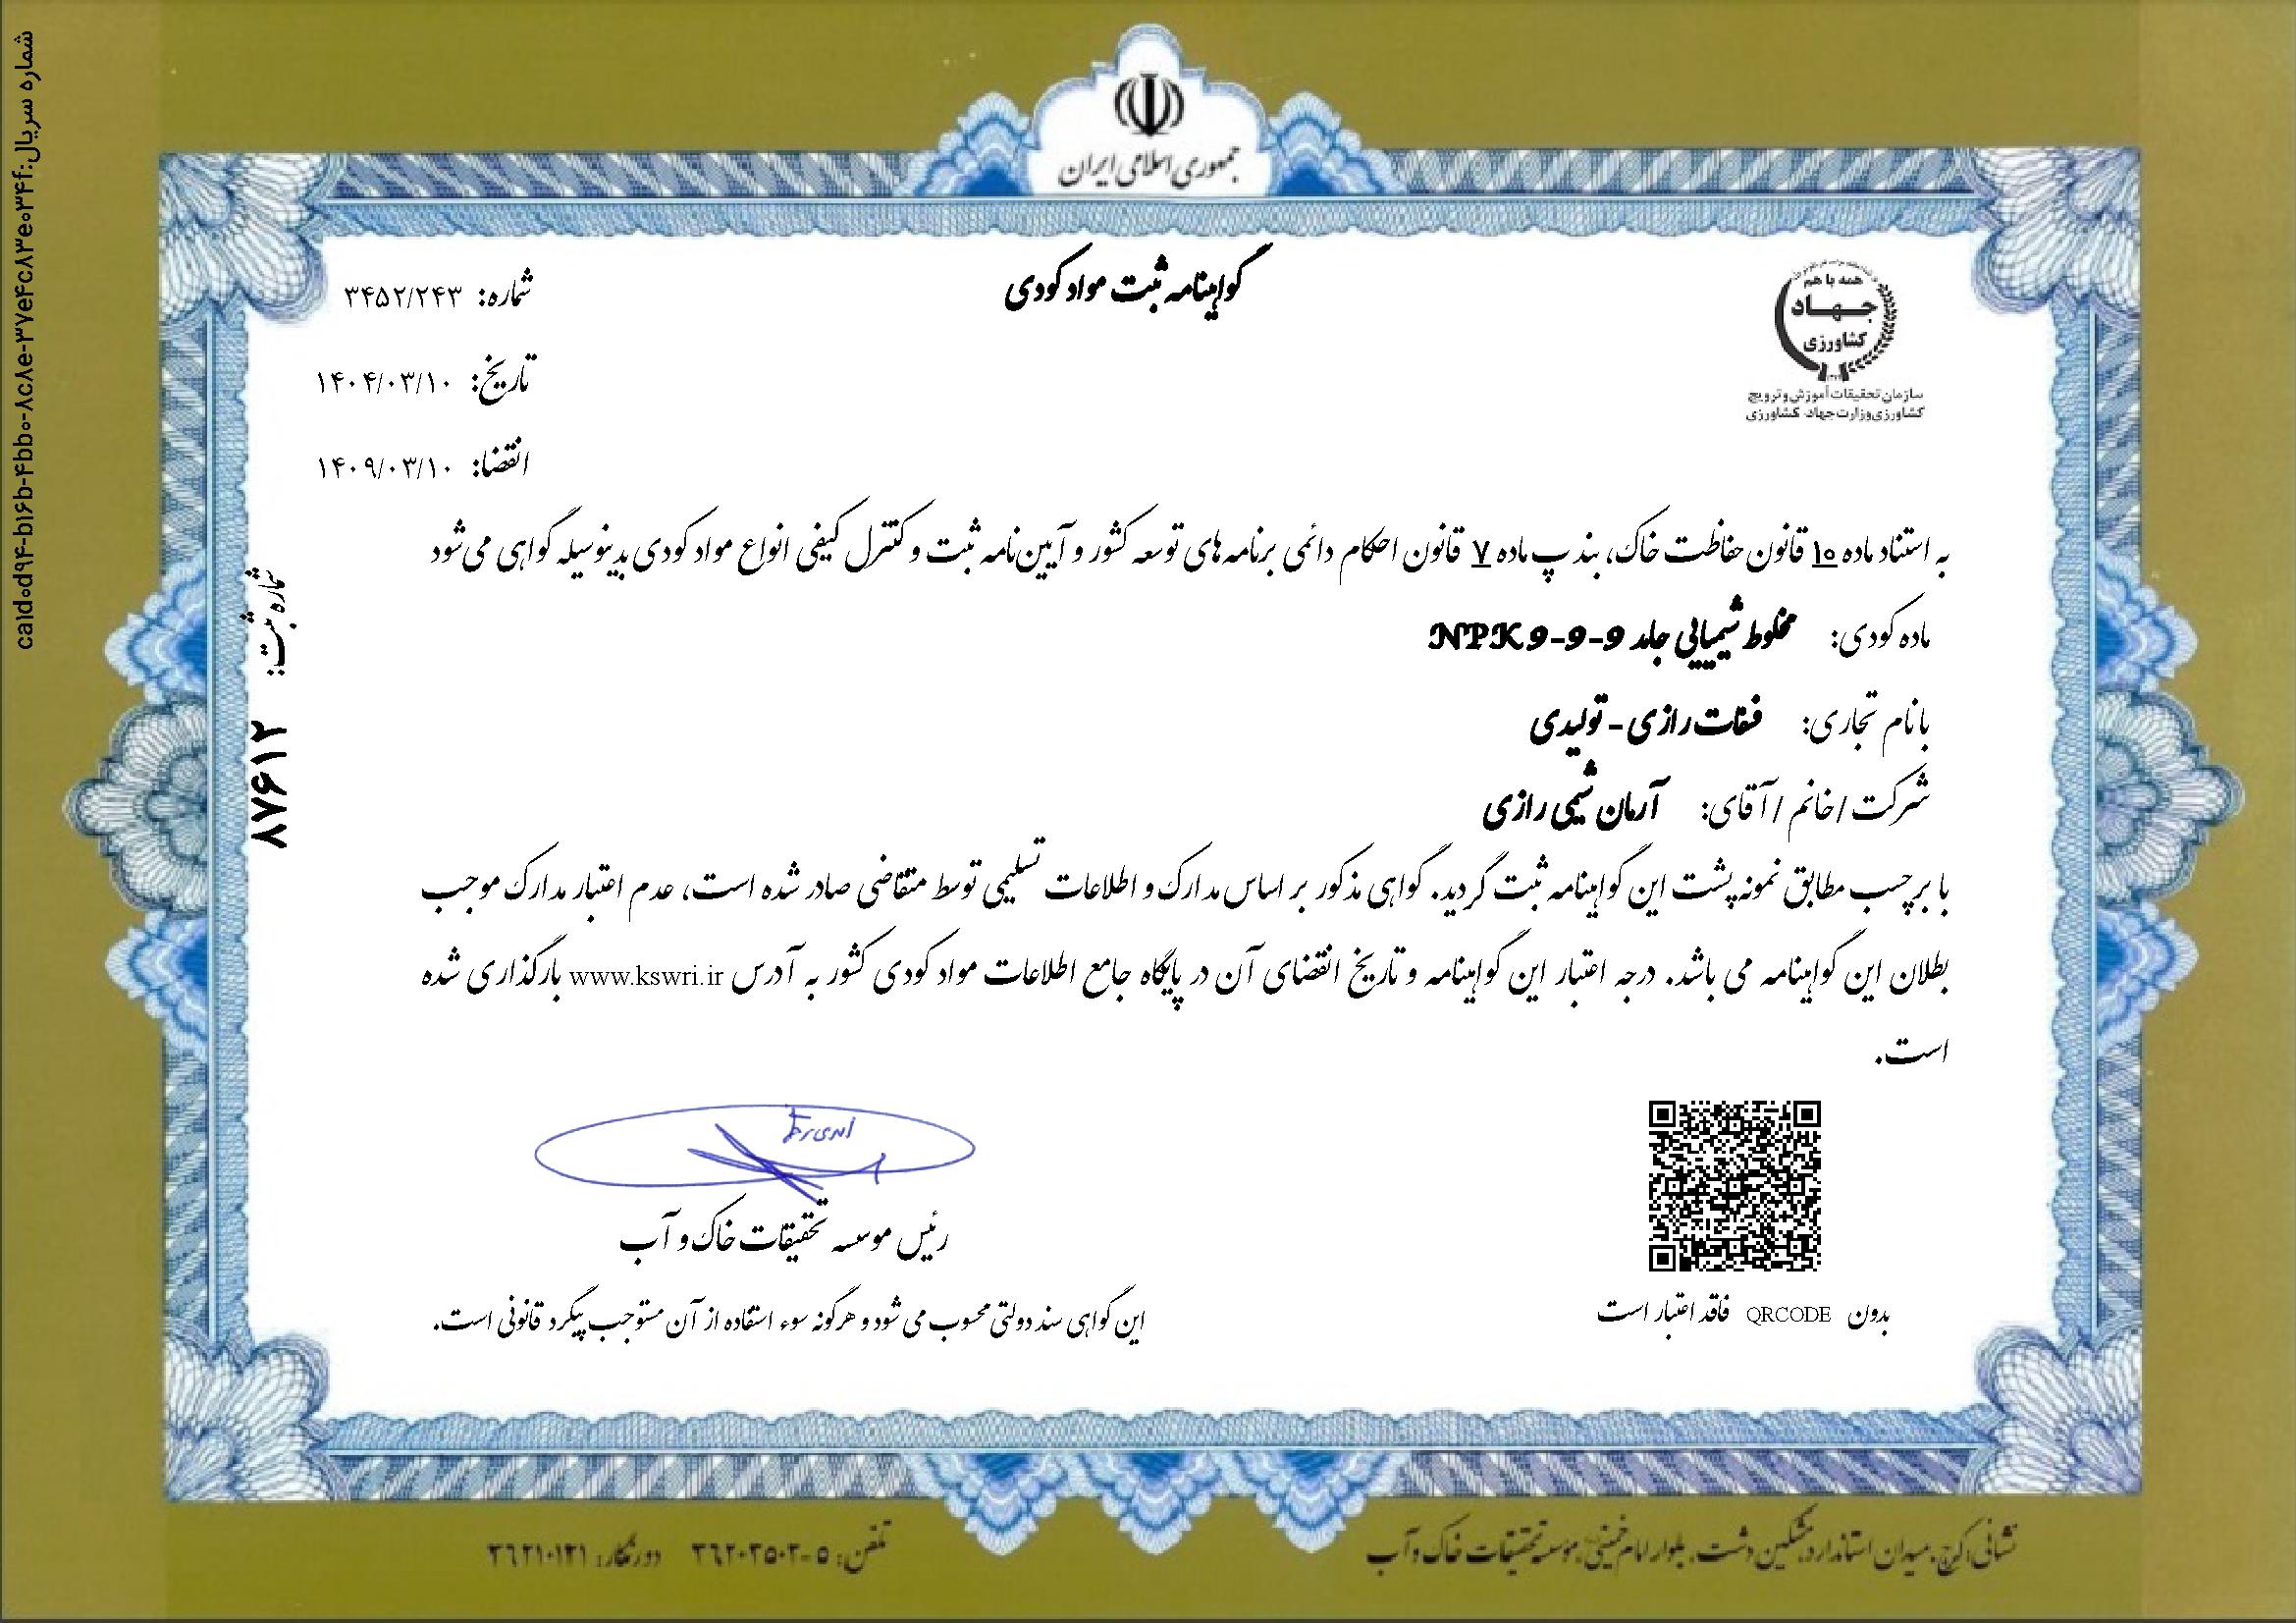 شماره سریال:ca1d0d94-b16b-4bb0-8c8e-37e4c83e034f
جمهوری اسلامی ایران
همه با هم
جهاد
کشاورزی
سازمان تحقیقات آموزش و ترویج
کشاورزی وزارت جهاد کشاورزی
گواهینامه ثبت مواد کودی
شماره: ۳۴۵۲/۲۴۳
تاریخ: ۱۴۰۴/۰۳/۱۰
انقضا: ۱۴۰۹/۰۳/۱۰
شماره ثبت: ۸۷۶۱۲
به استناد ماده ۱۰ قانون حفاظت خاک، بند پ ماده ۷ قانون احکام دائمی برنامه های توسعه کشور و آیین نامه ثبت و کنترل کیفی انواع مواد کودی بدینوسیله گواهی می شود
ماده کودی: مخلوط شیمیایی جامد NPK 9-9-9
با نام تجاری: فسفات رازی - تولیدی
شرکت / خانم / آقای: آرمان شیمی رازی
با برچسب مطابق نمونه پشت این گواهینامه ثبت گردید. گواهی مذکور بر اساس مدارک و اطلاعات تسلیمی توسط متقاضی صادر شده است، عدم اعتبار مدارک موجب
بطلان این گواهینامه می باشد. درجه اعتبار این گواهینامه و تاریخ انقضای آن در پایگاه جامع اطلاعات مواد کودی کشور به آدرس www.kswri.ir بارگذاری شده
است.
رئیس موسسه تحقیقات خاک و آب
بدون QRCODE فاقد اعتبار است
این گواهی سند دولتی محسوب می شود و هرگونه سوء استفاده از آن مستوجب پیگرد قانونی است.
نشانی: کرج، میدان استاندارد، مشکین دشت، بلوار امام خمینی، موسسه تحقیقات خاک و آب
تلفن: ۵-۳۶۲۰۲۵۰۲ دورنگار: ۳۶۲۱۰۱۲۱